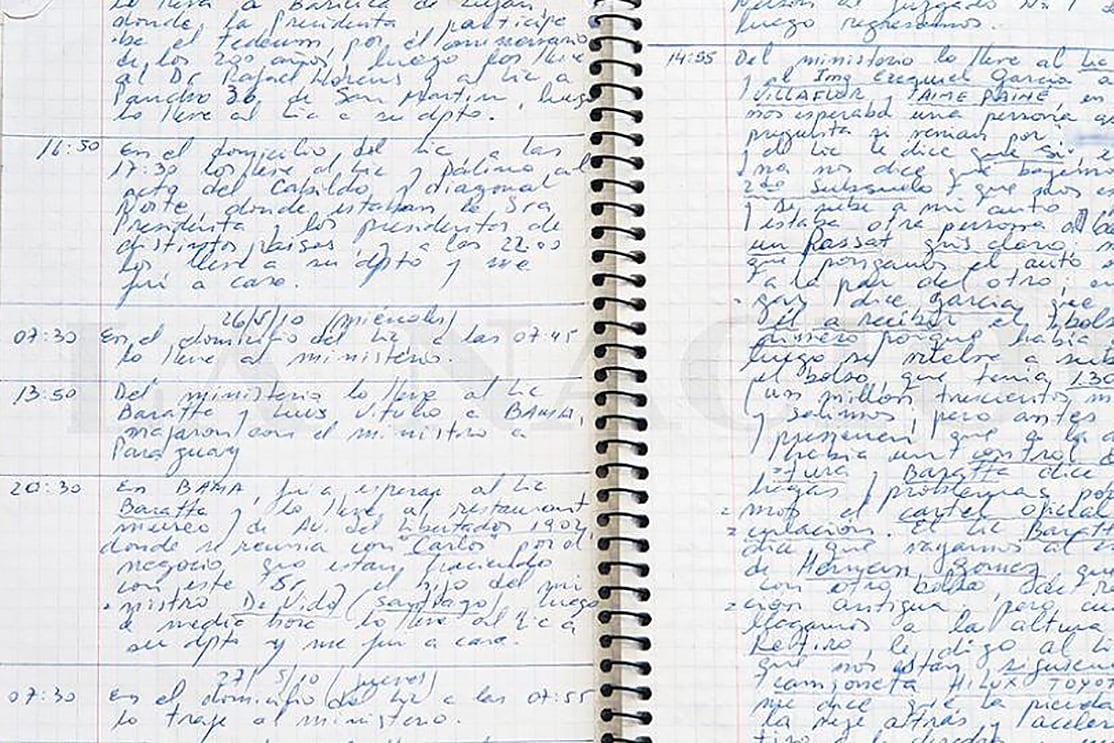 lo llevé a Basílica de Luján
donde la Presidenta participe
be el tedeum, por el aniversario
de los 200 años, luego los llevé
al Dr Rafael Llorens y al Lic a
Pancho 36 de San Martin, luego
lo llevé al Lic a su dpto.
16:50 En el domicilio del Lic a las
17:30 los llevé al Lic y Pálina al
acto del Cabildo y diagonal
Norte, donde estaban la Sra
Presidenta y los presidentes de
distintos países y a las 22:00
los llevé a su dpto y me
fui a casa.
26/5/10 (miércoles)
07:30 En el domicilio del Lic a las 07:45
lo llevé al ministerio.
13:50 Del ministerio lo llevé al Lic
Baratta y Luis Vitullo a BAMA,
viajaron con el ministro a
Paraguay
20:30 En BAMA, fui a esperar al Lic
Baratta y lo llevé al restaurant
museo de Av. Del Libertador 1902
donde se reunía con "Carlos" por el
negocio que están haciendo
con este Sr y el hijo del mi
=nistro De Vido (Santiago), luego
de media hora lo llevé al Lic a
su dpto y me fui a casa.
27/5/10 (jueves)
07:30 En el domicilio del Lic a las 07:55
lo traje al ministerio.
al juzgado Nº 1 d
luego regresamos.
14:55 Del ministerio lo llevé al Lic
y el Ing Ezequiel García a
VILLAFLOR y JAIME PAINÉ, en
nos esperaba una persona a
pregunta si venían por
y el Lic le dice que Sí, e
nos dice que bajemos
2do Subsuelo y que nos es
Se sube a mi auto
estaba otra persona
un Passat gris claro;
que pongamos el auto
a la par del otro; en
dice García que
él a recibir el bolso
primero porque había
luego se vuelve a sub
el bolso, que tenía 1.30
(un millón trescientos m
y salimos, pero antes
que a la
había un control d
=tura y Baratta dice
hugas problemas por
=mos el cartel oficial
=culación. El Lic Bara
dice que vayamos al
de Hernán Gomez que
con otro bolso, del
=ción antigua, pero cu
llegamos a la altura
Retiro, le digo al Li
que nos están siguien
camioneta HILUX TOYO
me dice que la pierda
la dejé atrás y aceler